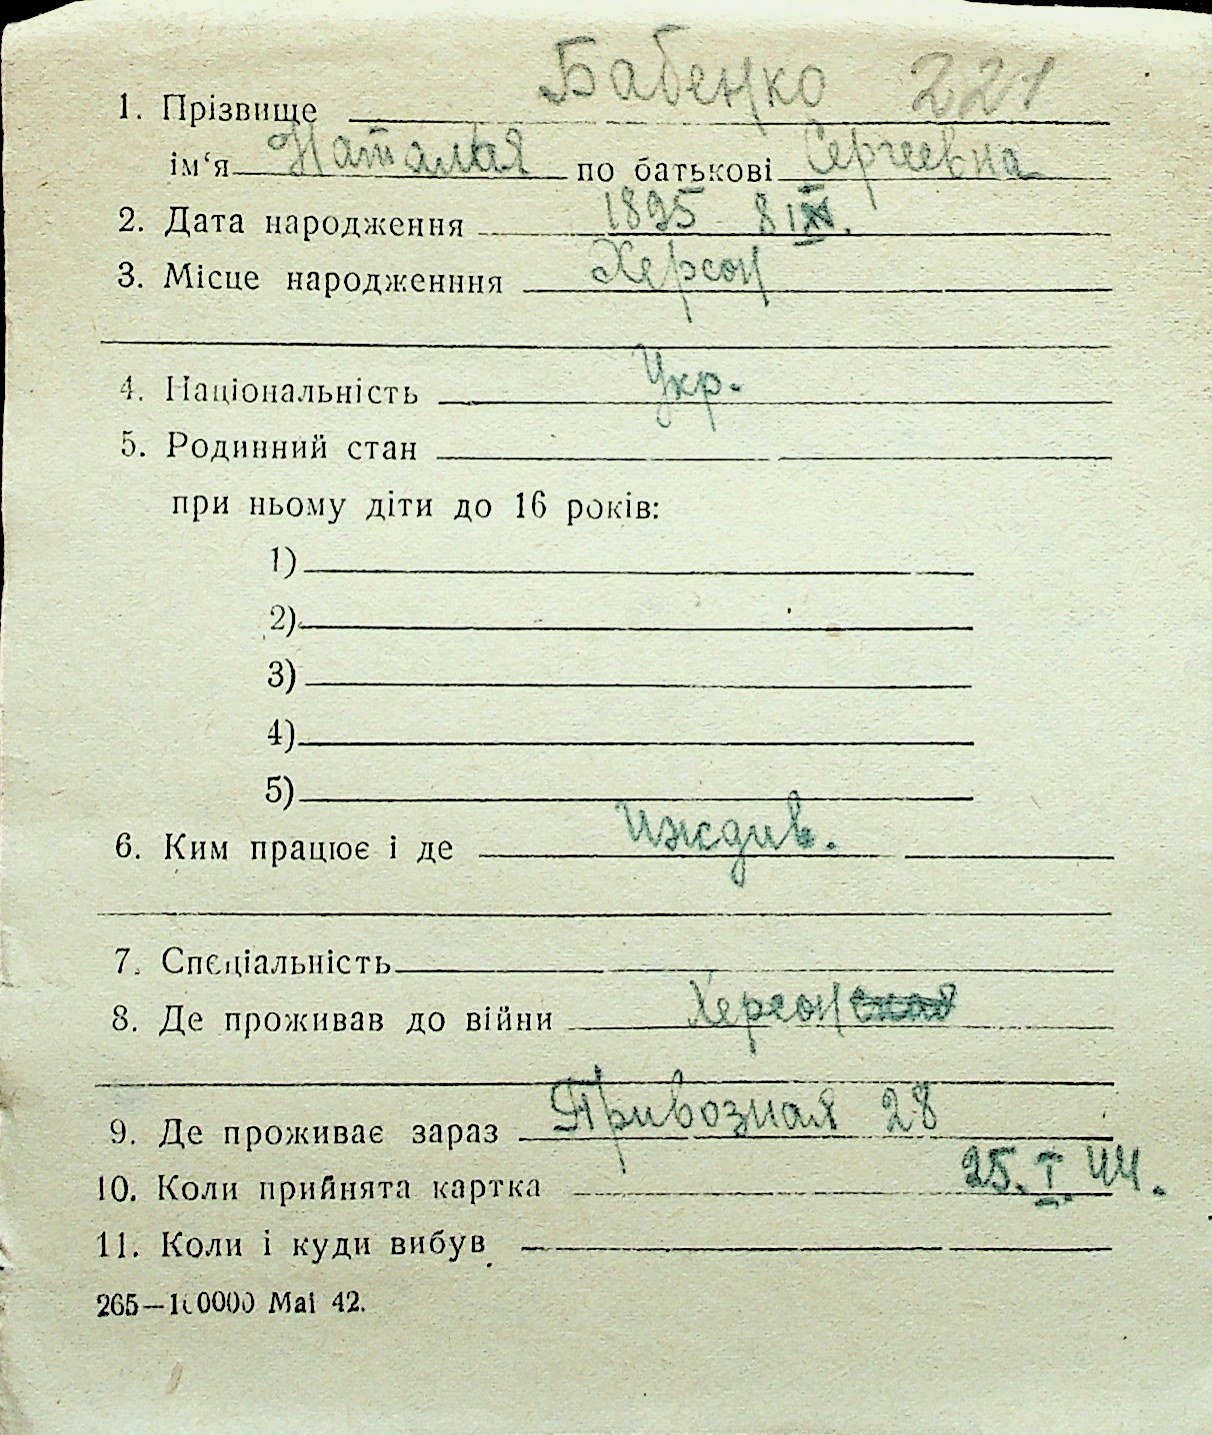 1. Прізвище Бабенко 221
ім‘я Наталья по батькові Сергеевна
2. Дата народження 1895 8
3. Місце народженння Херсон
4. Національність Укр.
5. Родинний стан
при ньому діти до 16 років:
1)
2)
3)
4)
5)
6. Ким працює і де Иждив.
7. Спєціальність
8. Де проживав до війни Херсон
9. Де проживає зараз Привозная 28
10. Коли прийнята картка 25. I 44.
11. Коли і куди вибув
265—100000 Mai 42.